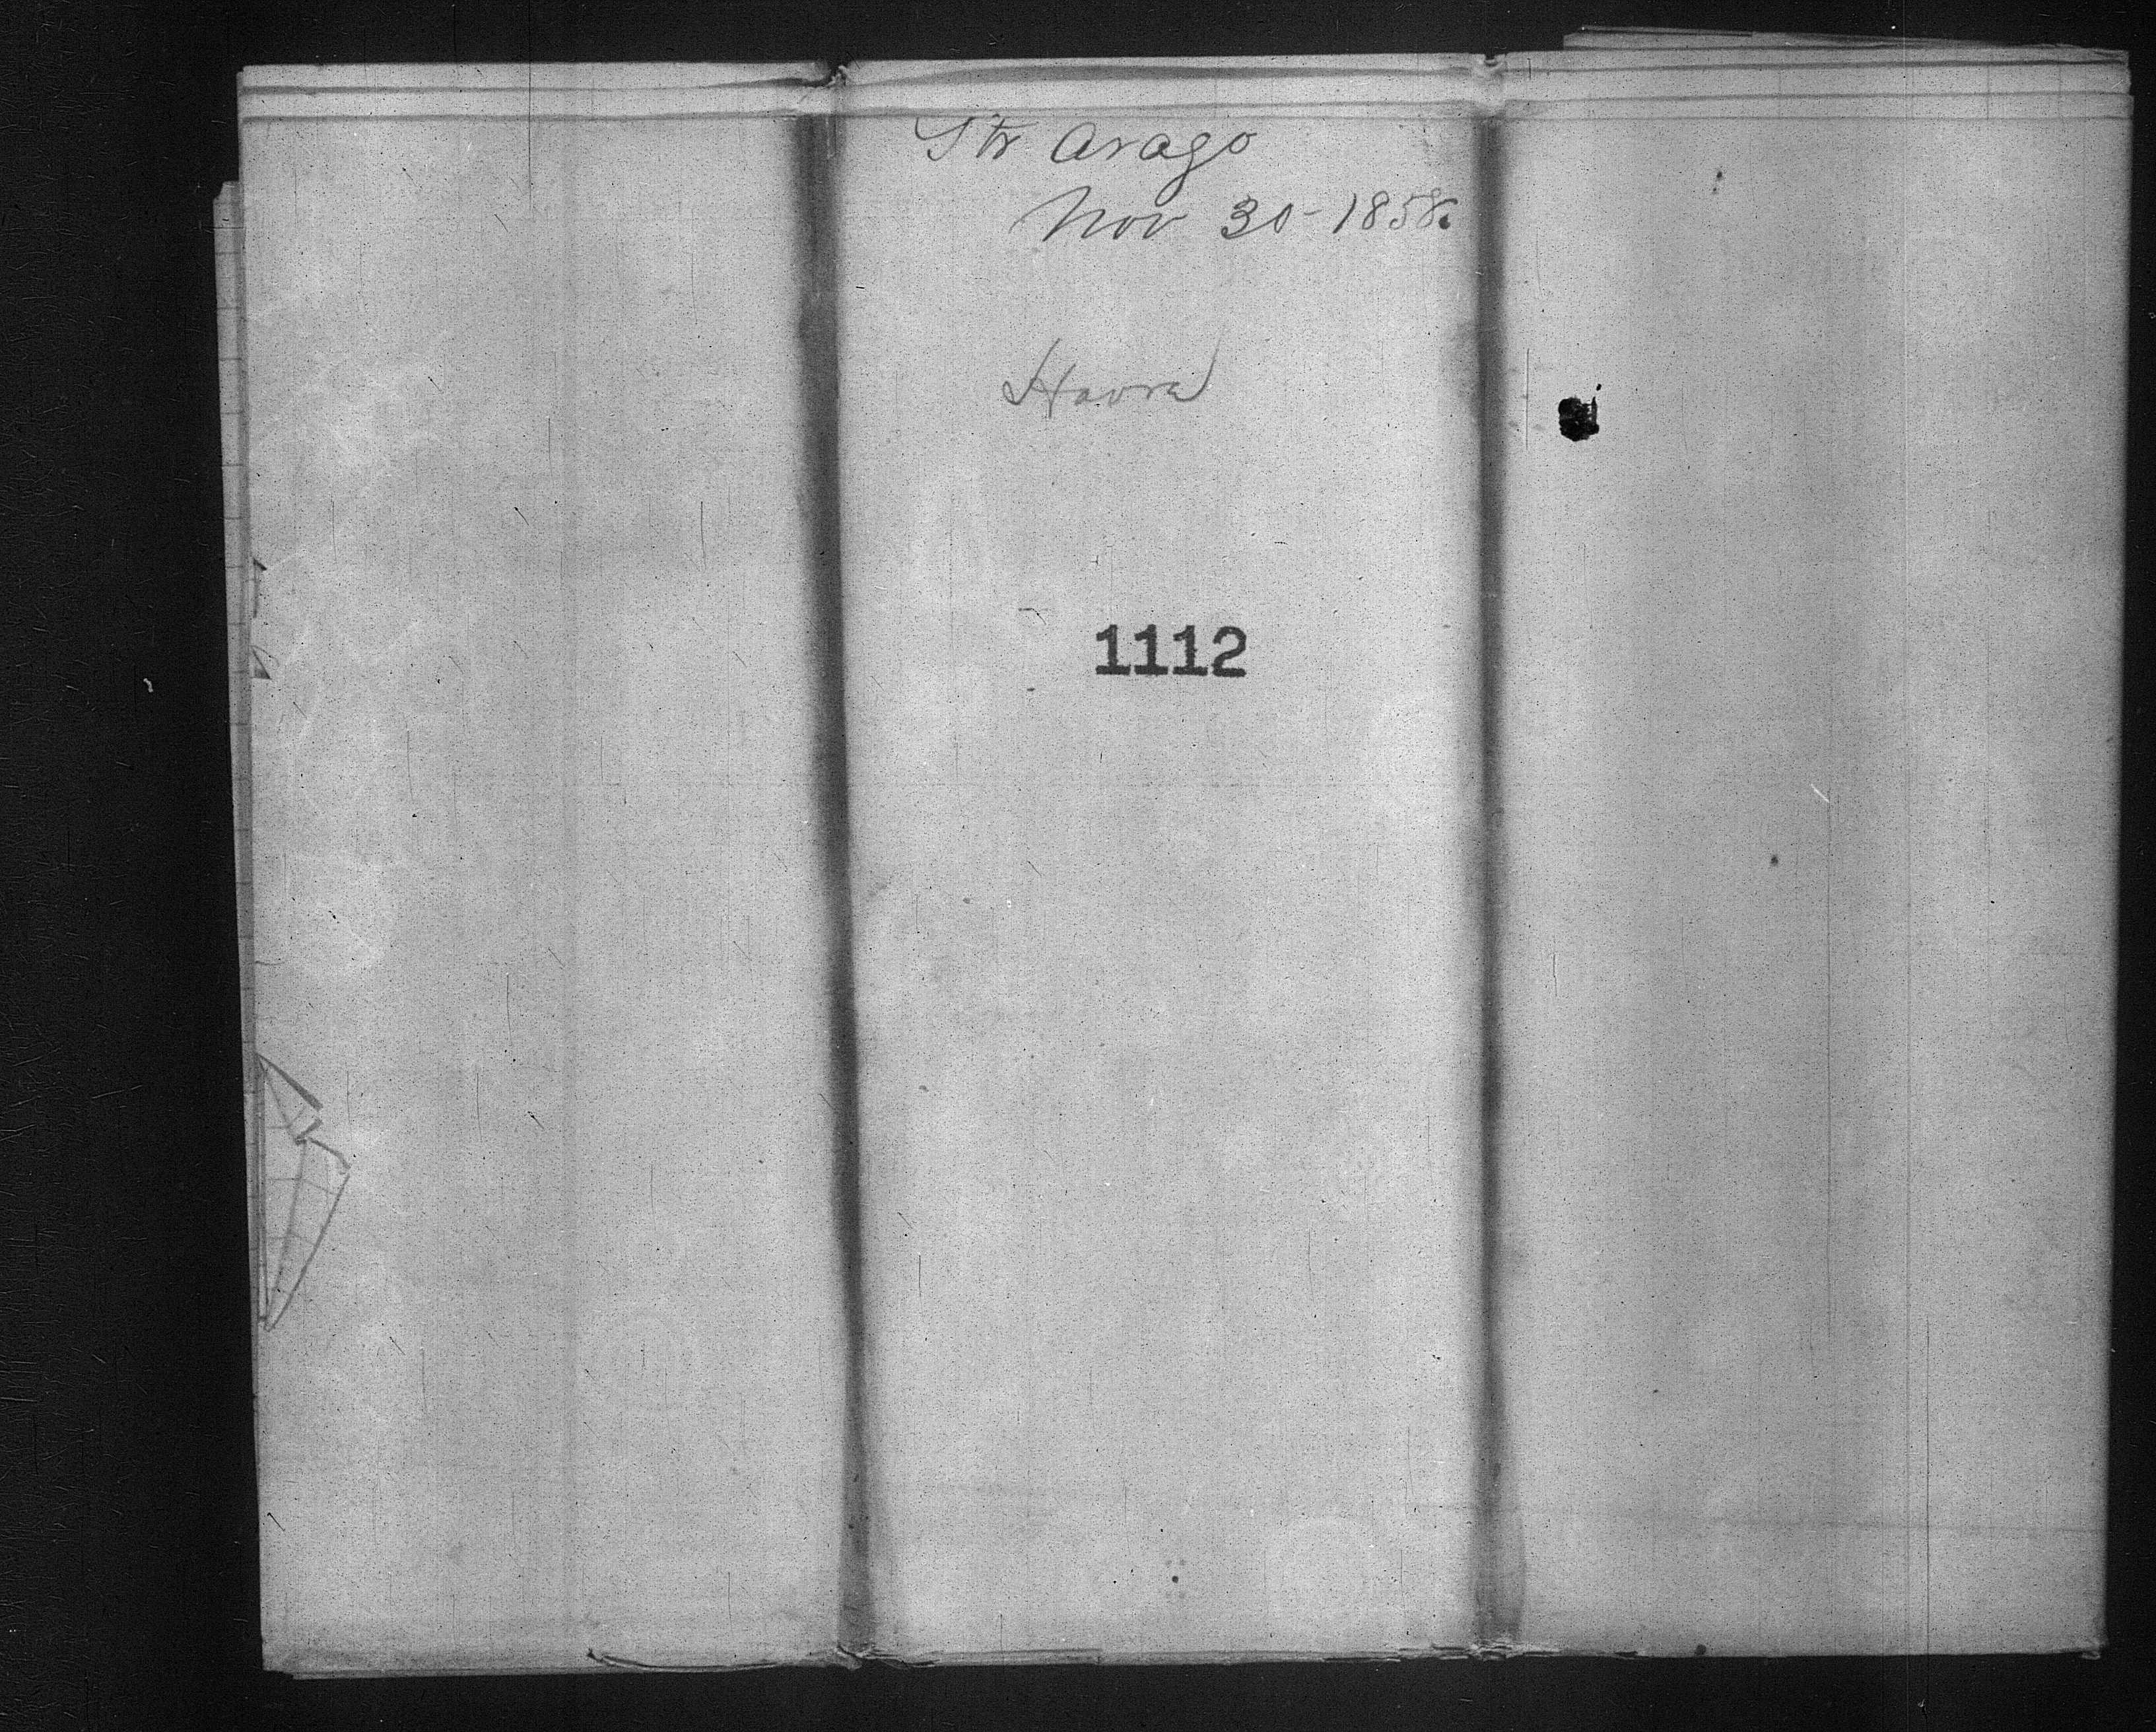 Str Arago
Nov 30 - 1858.
Havre
1112